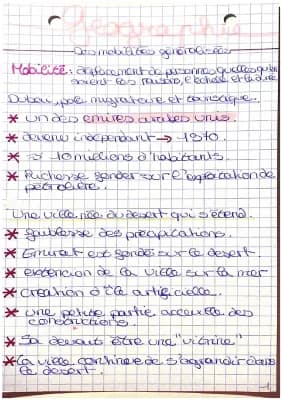 Geographie
Des mobilités généralisées
Mobilité : déplacement de personnes quelles qu'en
soient les raisons, l'échelle et la durée
Dubaï, pole migratoire et touristique.
* un des emires arabes unis.
* devenu independant → 1970.
* 10 millions d'habitants.
* Richesse fonder sur l'exploitation de
pétrolière.
Une ville née du desert qui s'étend.
* faiblesse des précipitations.
* Emirat est fondé sur le desert.
* extencion de la ville sur la mer
* creation d'île artificielle.
* une petite partie accueille des
constructions.
* Sa devants être une "vitrine"
* la ville continue de s'agrandir dans
le desert.
1